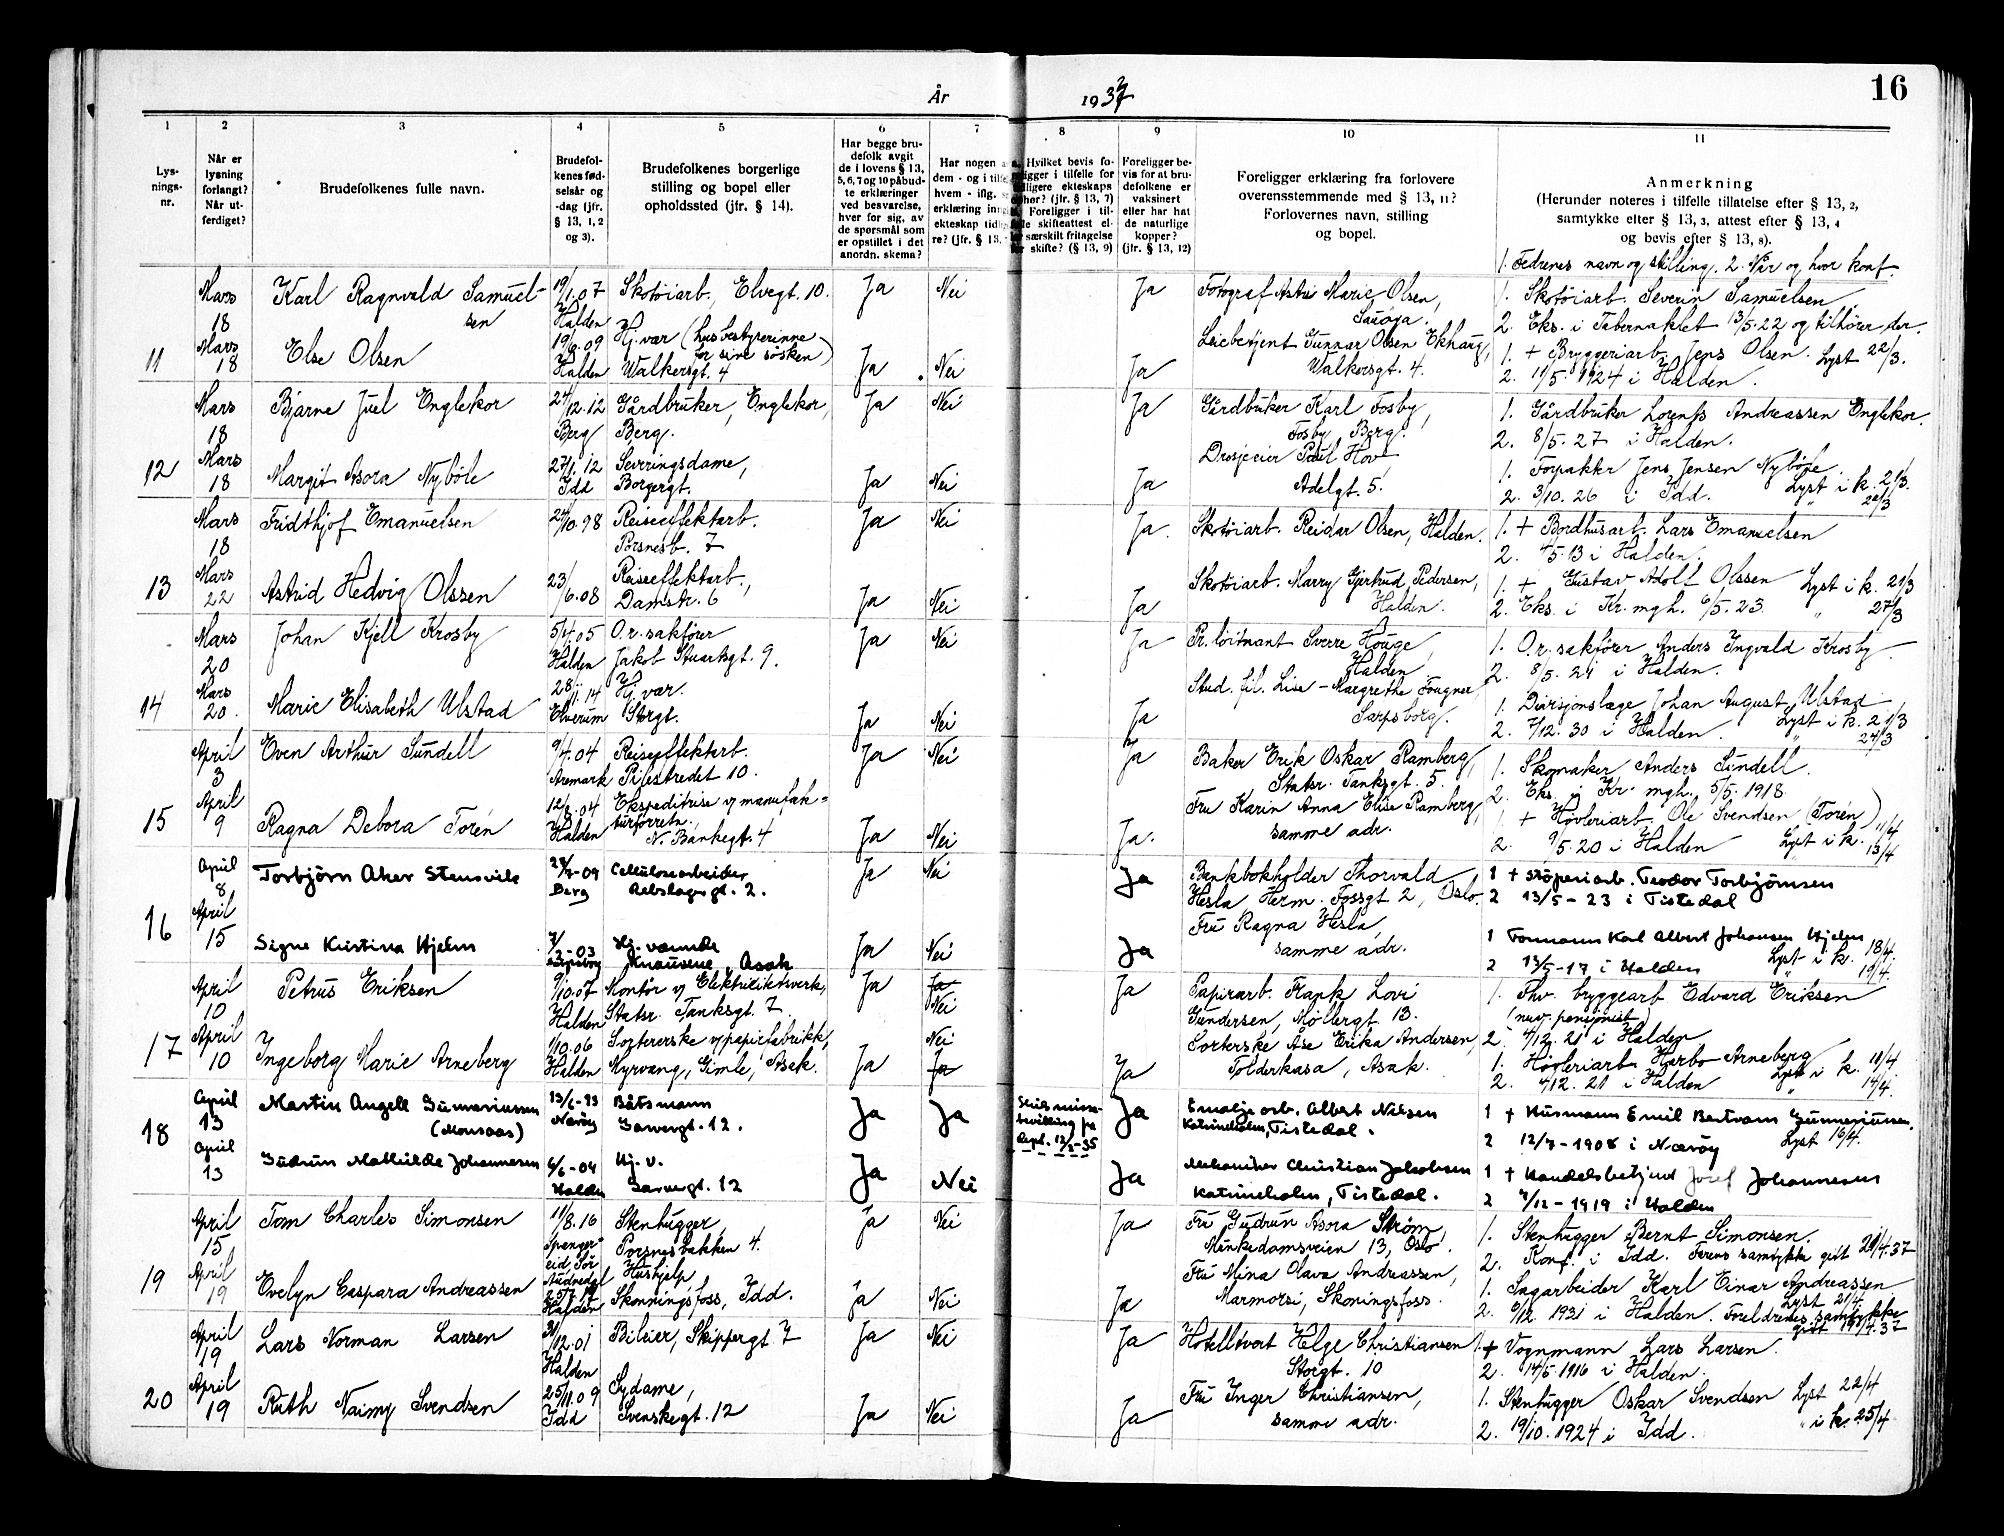 16
År 1937
1 2 3 4 5 6 7 8 9 10 11
Lys-
nings-
nr.
Når er
lysning
forlangt?
Når ut-
ferdiget?
Brudefolkenes fulle navn.
Brudefol-
kenes fød-
selsår og
-dag (jfr.
§ 13, 1, 2
og 3).
Brudefolkenes borgerlige
stilling og bopel eller
opholdssted (jfr. § 14).
Har begge bru-
defolk avgit
de i lovens § 13,
5, 6, 7 og 10 påbud-
te erklæringer
ved besvarelse,
hver for sig, av
de spørsmål som
er opstillet i det
anordn. skema?
Har nogen a
dem - og i tilfe
hvem - iflg.
erklæring inng
ekteskap tidlig
re? (jfr. § 13,
Hvilket bevis fo-
religger i tilfelle for
tidligere ekteskaps
ophør? (jfr. § 13, 7)
Foreligger i til-
felle skifteattest el-
ler særskilt fritagelse
for skifte? (§ 13, 9)
Foreligger be-
vis for at bru-
defolkene er
vaksinert
eller har hat
de naturlige
kopper?
(jfr. § 13, 12)
Foreligger erklæring fra forlovere
overensstemmende med § 13, 11?
Forlovernes navn, stilling
og bopel.
Anmerkning
(Herunder noteres i tilfelle tillatelse efter § 13, 2,
samtykke efter § 13, 3, attest efter § 13, 4
og bevis efter § 13, 8).
1. Fedrenes navn og stilling. 2. Når og hvor konf.
11
Mars 18
Karl Ragnvald Samuel-
sen
19/1.07 Halden
Skotøiarb., Elvegt. 10.
Ja Nei Ja
Fotograf Astri Marie Olsen,
Sauøya.
1. Skotøiarb. Severin Samuelsen
2. Eks. i Tabernaklet 13/5.22 og tilhører der.
Mars 18
Else Olsen
19/6.09 Halden
Hj.vær (husbestyrerinne
for sine søsken)
Walkersgt. 4
Ja Nei Ja
Leiebetjent Gunnar Olsen Ekhaug,
Walkersgt. 4.
1. + Bryggeriarb. Jens Olsen. Lyst 22/3.
2. 11/5. 1924 i Halden.
12
Mars 18
Bjarne Juel Englekor
24/12.12 Berg
Gårdbruker, Englekor,
Berg.
Ja Nei Ja
Gårdbuker Karl Fosby,
Fosby, Berg.
1. Gårdbruker Lorents Andreassen Englekor.
2. 8/5. 27 i Halden.
Mars 18
Margit Asora Nybøle
27/1.12 Idd
Severingsdame,
Borgergt.
Ja Nei Ja
Drosjeeier Paul Hov
Adelgt. 5.
1. Forpakter Jens Jensen Nybøle.
2. 3/10. 26 i Idd. Lyst i k. 21/3.
" 22/3
13
Mars 18
Fridthjof Emanuelsen
24/10.98
Reiseeffektarb.
Porsnesb. 7
Ja Nei Ja.
Skotøiarb. Reidar Olsen, Halden.
1. + Bordhusarb. Lars Emanuelsen
2. 4/5. 13 i Halden.
Mars 22
Astrid Hedvig Olssen
23/6.08
Reiseeffektarb.,
Damstr. 6
Ja Nei Ja
Skotøiarb. Marry Gjertrud Pedersen,
Halden.
1. + Gustav Adolf Olssen Lyst i k. 21/3
2. Eks. i Kr. mgh. 6/5. 23. " 27/3
14
Mars 20
Johan Kjell Krosby
5/4.05 Halden
O.r. sakfører
Jakob Stuartsgt. 9.
Ja Nei Ja
Pr. løitnant Sverre Houge,
Halden
1. O.r. sakfører Anders Ingvald Krosby.
2. 8/5. 21 i Halden.
Mars 20.
Marie Elisabeth Ulstad
28/11.14 Elverum
Hj. vær.
Storgt.
Ja Nei Ja
Stud. fil. Lise-Margrethe Fougner,
Sarpsborg.
1. Divisjonslæge Johan August Ulstad
2. 7/12. 30 i Halden. Lyst i k. 21/3
" 24/3
15
April 3
Even Arthur Sundell
9/4.04 Aremark
Reiseeffektarb.
Pilestredet 10.
Ja Nei Ja
Baker Erik Oskar Ramberg,
Statsr. Tanksgt. 5.
1. Skomaker Anders Sundell.
2. Eks. i Kr. mgh. 5/5. 1918.
April 9
Ragna Debora Torén
12/8.04 Halden
Ekspeditrise v/ manufak-
turforretn.,
N. Bankegt. 4
Ja Nei Ja.
Fru Karin Anna Elise Ramberg,
samme adr.
1. + Høvleriarb. Ole Svendsen (Torén)
2. 9/5. 20 i Halden Lyst i k. 11/4
" 13/4
16
April 8
Torbjörn Aker Stensvik
Berg
Cellulosearbeider
Rebslagergt. 2.
Ja Nei Ja
Bankbokholder Thorvald
Hesla, Herm. Fossgt 2, Oslo.
1 + støperiarb. Teodor Torbjörnsen
2 13/5 - 23 i Tistedal
April 15
Signe Kristina Hjelm
Hj. værende
Knausene, Asak
Ja Nei Ja
Fru Ragna Hesla,
samme adr.
1 Formann Karl Albert Johansen Hjelm
2 13/5 - 17 i Halden Lyst i k. 18/4.
" 19/4.
17
April 10
Petrus Eriksen
9/10.07 Halden
Montør v/ Elektrisitetsverk,
Statsr. Tanksgt. 7.
Ja Ja Nei Ja
Papirarb. Frank Lovi
Gundersen, Mølbergt. 13.
1. Fhv. bryggearb. Edvard Eriksen
(nuv. pensjonist)
2. 4/12. 21 i Halden
April 10
Ingeborg Marie Arneberg
1/10.06 Halden
Sortererske v/ papirfabrikk,
Myrvang, Gimle, Asak.
Ja Nei Ja Ja
Sorterske Åse Erika Andersen,
Folderkasa, Asak.
1. Høvleriarb. Herbo Arneberg
2. 4/12. 21 i Halden Lyst i k. 11/4.
" 14/4.
18
April 13
Martin Angell Gunnariussen
(Monsaas)
13/6-93 Nærøy
Båtsmann
Garvergt. 12.
Ja Ja
Skilsmisse-
bevilling fra
Dept. 12/2-35
Ja
Emaljearb. Albert Nilsen
Katrineholm, Tistedal.
1 + Husmann Emil Bertram Gunnariussen.
2 12/7-1908 i Nærøy Lyst 16/4.
April 13
Gudrun Mathilde Johannesen
6/6-04 Halden
Hj. v.
Garvergt. 12
Ja Nei Ja
Mekaniker Christian Jakobsen
Katrineholm, Tistedal.
1 + Handelsbetjent Josef Johannesen
2 7/12 - 1919 i Halden
19
April 15
Tom Charles Simonsen
11/8.16
Spanger-
eid, Sør
Audnedal
Stenhugger,
Porsnesbakken 4.
Ja Nei Ja
Fru Gudrun Asora Strøm,
Munkedamsveien 13, Oslo.
1. Stenhugger Bernt Simonsen.
2. Konf. i Idd. Farens samtykke gitt 20/4. 37
April 19
Evelyn Caspara Andreassen
Halden
Hushjelp,
Skonningsfoss, Idd.
Ja Nei Ja
Fru Mina Olava Andreassen,
Marmorsi, Skoningsfoss.
1. Sagarbeider Karl Einar Andreassen
2. 6/12. 1931 i Halden. Lyst 21/4.
Foreldrenes samtykke
gitt 19/4. 37
20
April 19
Lars Norman Larsen
31/12.01 Halden
Bileier, Skippergt. 7
Ja Nei Ja
Hotellvert Helge Christiansen
Storgt. 10
1. + Vognmann Lars Larsen.
2. 14/5. 1916 i Halden.
April 19
Ruth Naimy Svendsen
25/11.09 Idd
Sydame,
Svenskegt. 12
Ja Nei Ja
Fru Inger Christiansen,
samme adr.
1. Stenhugger Oskar Svendsen Lyst 22/4
2. 19/10. 1924 i Idd. " i k. 25/4